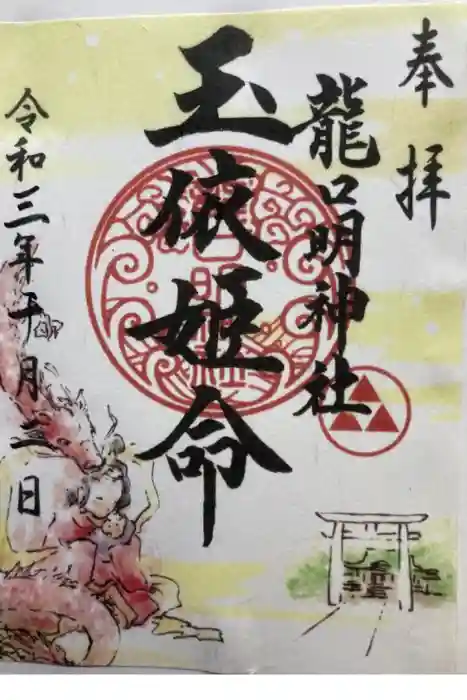 奉拝
龍口明神社
玉依姫命
令和三年十月二日